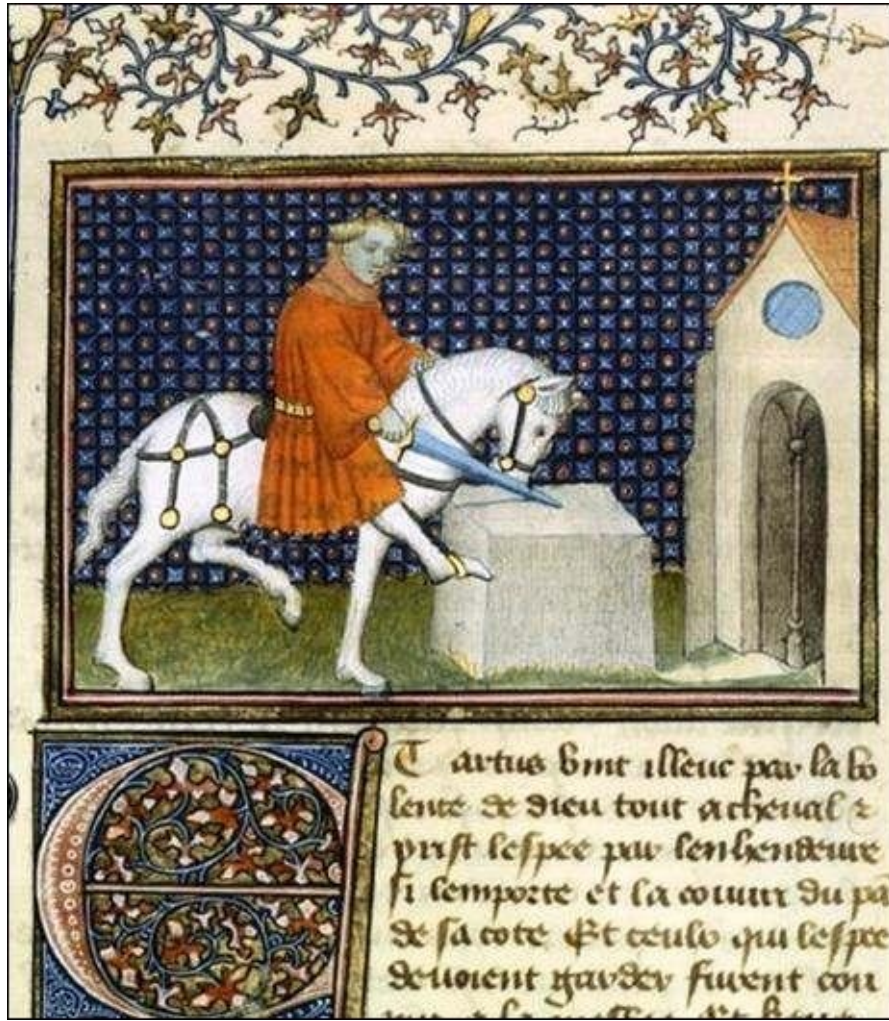 ET artus vint illeuc par la vo
lente de dieu tout acheval &
prist lespee par lenhendeure
si lemporte et la couvri du pa
de sa cote Et ceulx qui lespee
devoient garder furent cou
a la